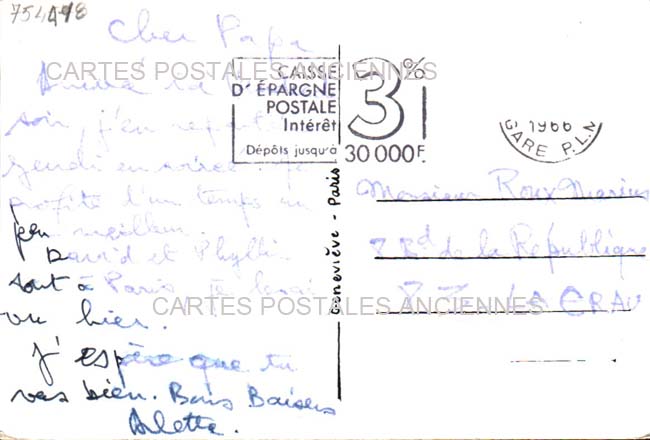 754498
Cher Papa
CARTES POSTALES ANCIENNES
soir, j'en
Jeudi en soirée. Je
profite d'un temps un
peu meilleur.
David et Phyllis
sont à Paris
vu hier.
J'espère que tu
vas bien. Bons Baisers
Arlette.
CAISSE
D'ÉPARGNE
POSTALE
Intérêt
Dépôts jusqu'à
3%
30 000F.
1966
GARE P.L.M
Geneviève - Paris
Monsieur Roux Marius
Bd de la République
LA CRAU
CARTES POSTALES ANCIENNES